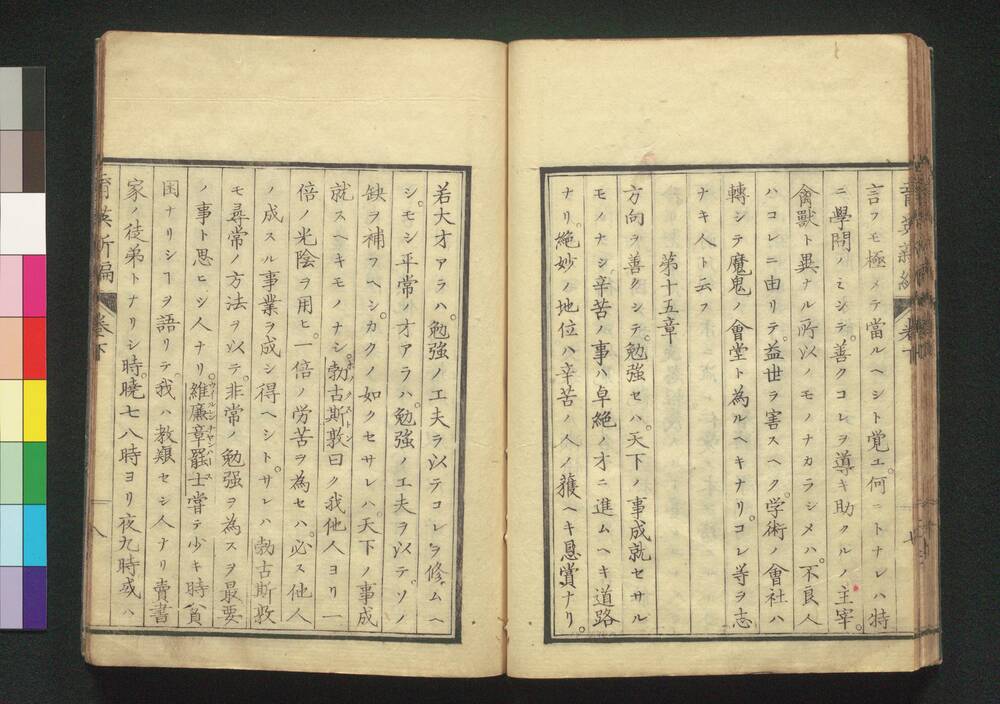 言フモ極メテ當ルヘシト覚エ。何ニトナレハ特
ニ學問ノミシテ。善クコレヲ導キ助クルノ主宰。
禽獸ト異ナル所以ノモノナカラシメハ。不良人
ハコレニ由リテ。益世ヲ害スヘク。学術ノ會社ハ
轉シテ魔鬼ノ會堂ト為ルヘキナリ。コレ等ヲ志
ナキ人ト云フ
第十五章
方向ヲ善クシテ。勉強セハ。天下ノ事成就セサル
モノナシ辛苦ノ事ハ卓絶ノ才ニ進ムヘキ道路
ナリ。絶妙ノ地位ハ辛苦ノ人ノ獲ヘキ恩賞ナリ。
若大才アラハ。勉強ノ工夫ヲ以テコレヲ修ムヘ
シ。モシ平常ノ才アラハ。勉強ノ工夫ヲ以テ。ソノ
缺ヲ補フヘシ。カクノ如クセサレハ。天下ノ事成
就スヘキモノナシ。勃古斯敦曰ク我他人ヨリ一
倍ノ光陰ヲ用ヒ。一倍ノ労苦ヲ為セハ。必ス他人
ノ成スル事業ヲ成シ得ヘシト。サレハ勃古斯敦
モ尋常ノ方法ヲ以テ。非常ノ勉強ヲ為スヲ最要
ノ事ト思ヒシ人ナリ。維廉章罷士嘗テ少キ時貧
困ナリシヿヲ語リテ。我ハ教頽セシ人ナリ賣書
家ノ徒弟トナリシ時。曉七八時ヨリ夜九時或ハ
育英新編
卷下
八